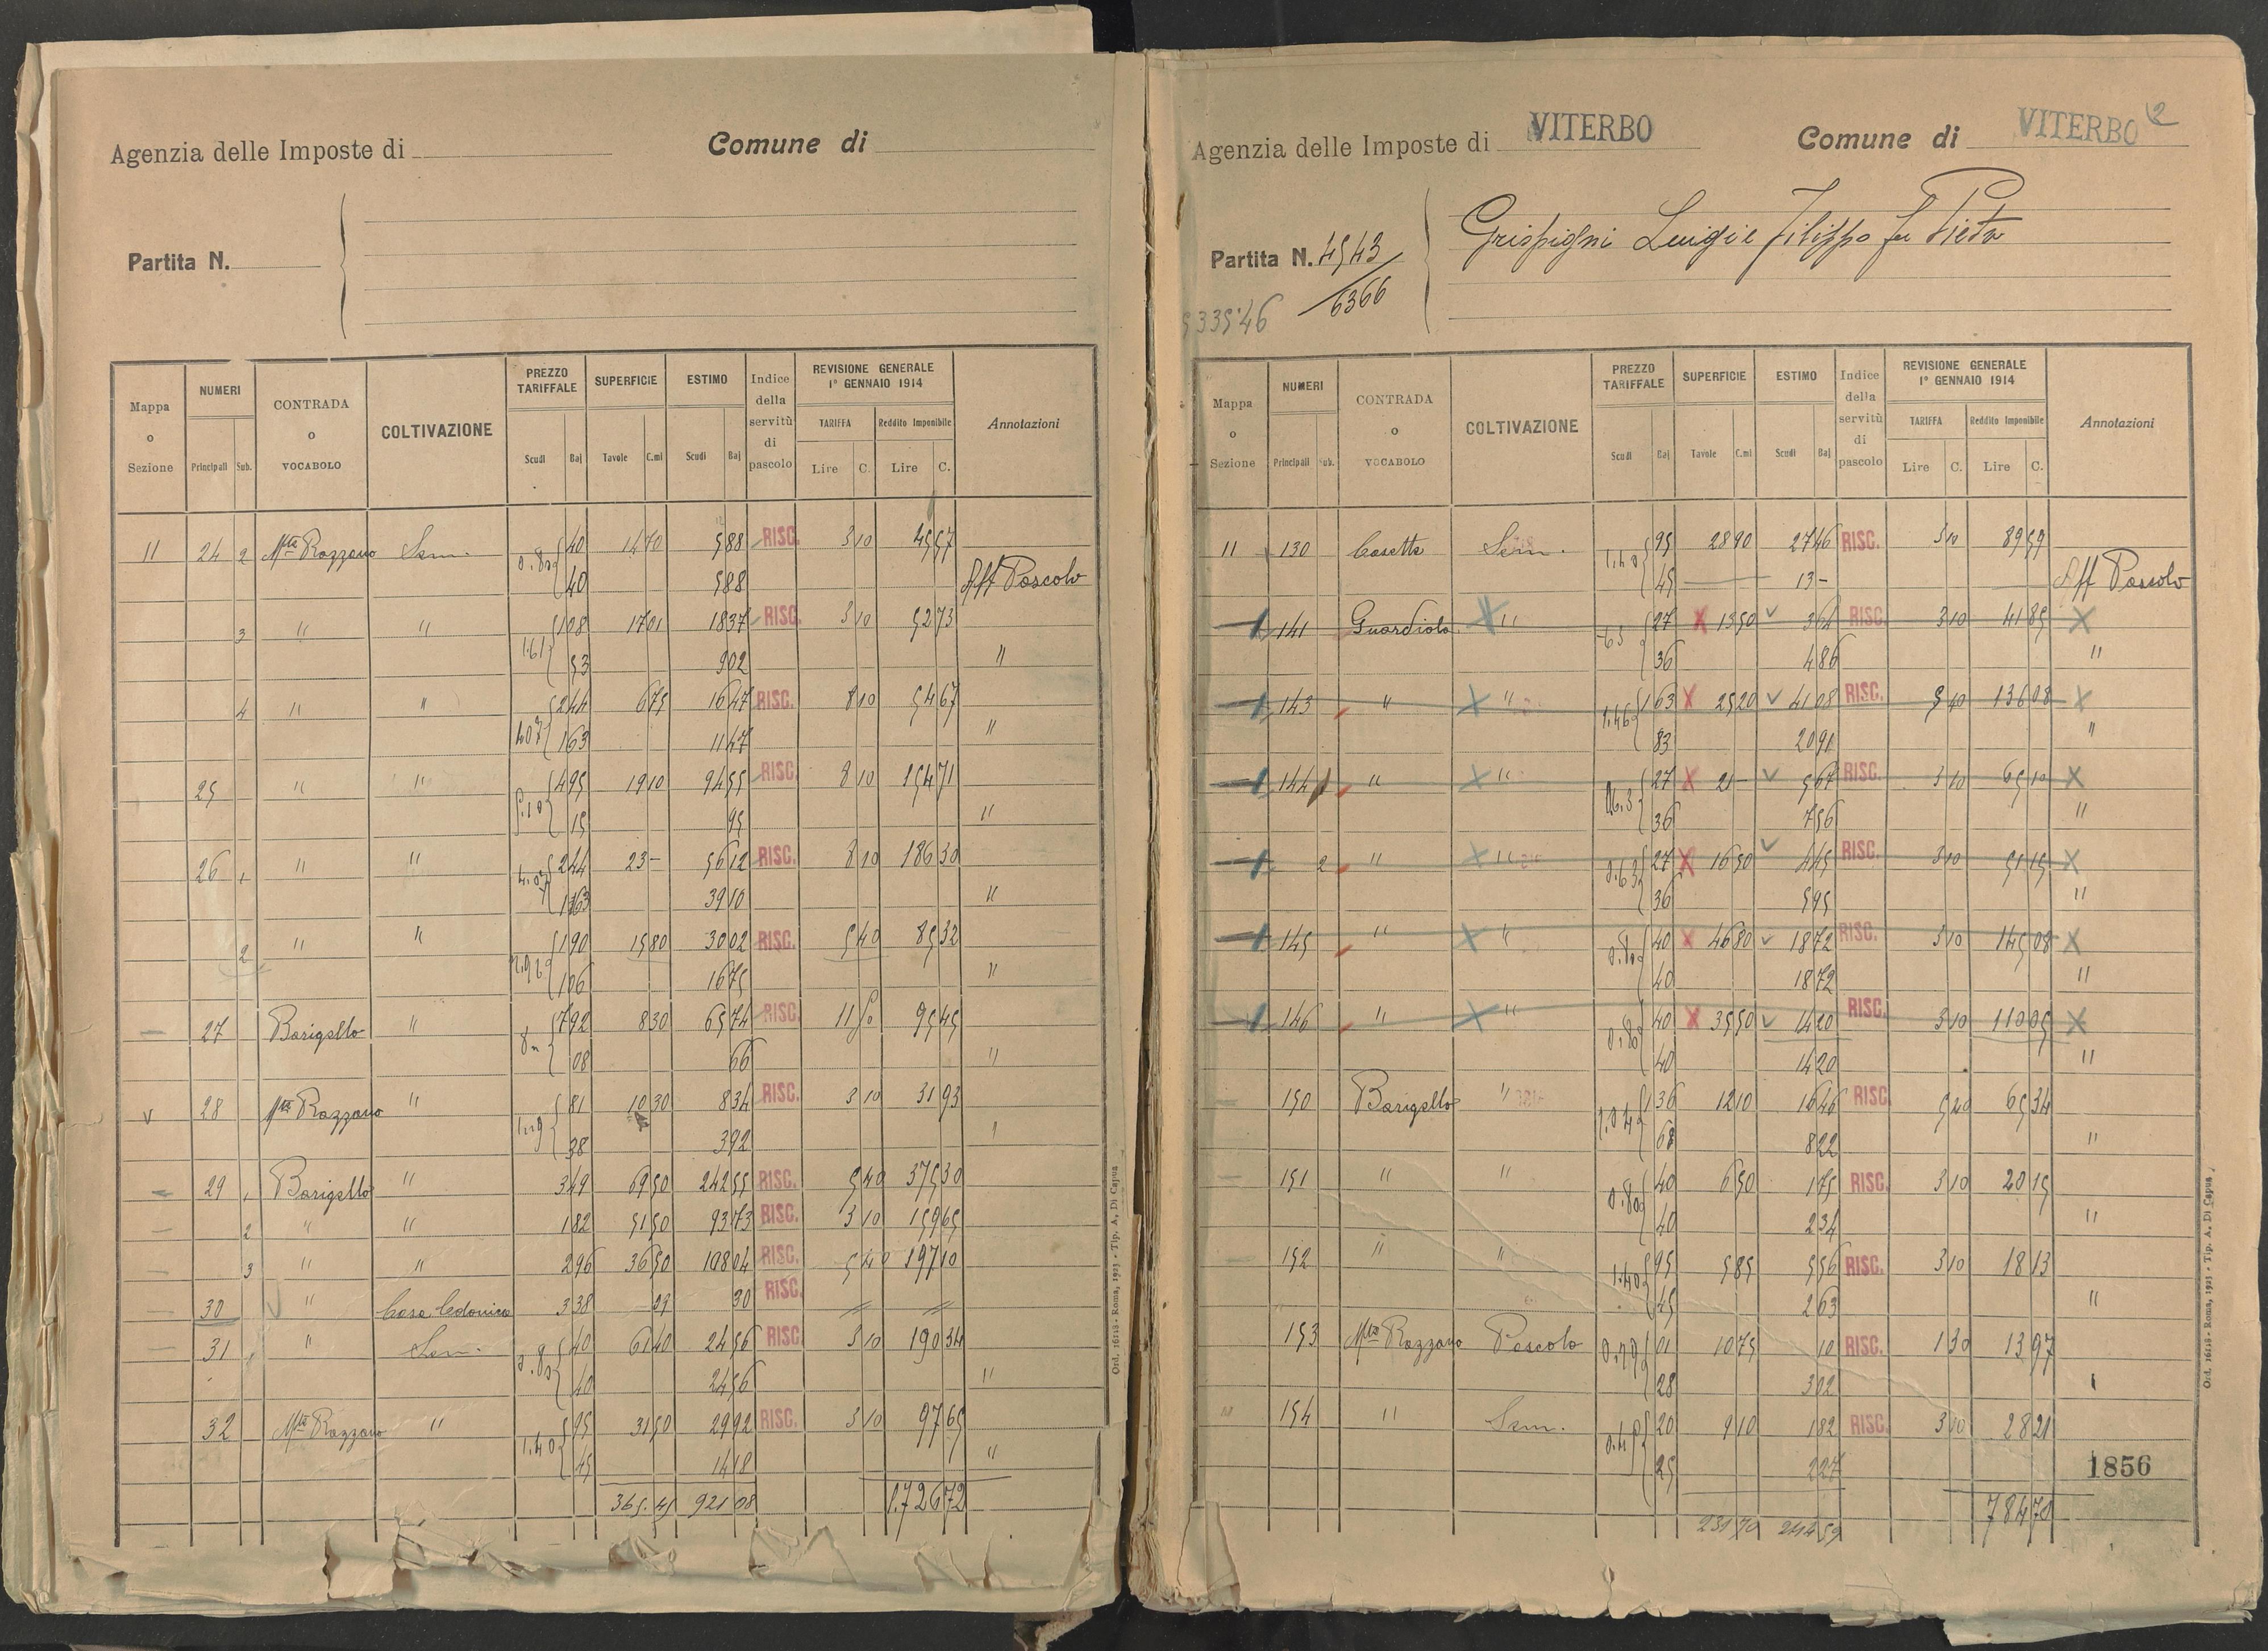 Agenzia delle Imposte di
Comune di
Partita N.
Mappa o Sezione
NUMERI
Principali Sub.
CONTRADA o VOCABOLO
COLTIVAZIONE
PREZZO TARIFFALE
Scudi Baj
SUPERFICIE
Tavole C.mi
ESTIMO
Scudi Baj
Indice della servitù di pascolo
REVISIONE GENERALE 1° GENNAIO 1914
TARIFFA
Lire C.
Reddito Imponibile
Lire C.
Annotazioni
11 24 2 Mte Razzano Sem. 0.80 40 14 70 5 88 RISC. 3 10 45 57
40 5 88 Aff Pascolo
3 " " 1.61 108 17 01 18 37 RISC. 3 10 52 73
53 9 02 "
4 " " 4.07 244 6 75 16 47 RISC. 8 10 54 67
163 11 47 "
25 " " 5.10 495 19 10 94 55 RISC. 8 10 154 71
15 95 "
26 1 " " 4.07 244 23 — 56 12 RISC. 8 10 186 30
163 39 10 "
2 " " 2.96 190 15 80 30 02 RISC. 5 40 85 32
106 16 75 "
27 Barigello " 8 " 792 8 30 65 74 RISC. 11 50 95 45
08 66 "
28 Mte Razzano " 1.19 81 10 30 8 34 RISC. 3 10 31 93
38 3 92 "
29 1 Barigello " 3 49 69 50 242 55 RISC. 5 40 375 30
2 " " 1 82 51 50 93 73 RISC. 3 10 159 65
3 " " 2 96 36 50 108 04 RISC. 5 40 197 10
30 " Casa Colonica 3 38 09 30 RISC. " "
31 1 " Sem. 0.80 40 61 40 24 56 RISC. 3 10 190 34
40 24 56 "
32 Mte Razzano " 1.40 95 31 50 29 92 RISC. 3 10 97 65
45 14 18 "
365.41 921 08 1.726 72
Ord. 16118 - Roma, 1923 - Tip. A. Di Capua
Agenzia delle Imposte di VITERBO
Comune di VITERBO
2
Partita N. 4543
6366
335'46
Grispigni Luigi e Filippo fu Pietro
Mappa o Sezione
NUMERI
Principali Sub.
CONTRADA o VOCABOLO
COLTIVAZIONE
PREZZO TARIFFALE
Scudi Baj
SUPERFICIE
Tavole C.mi
ESTIMO
Scudi Baj
Indice della servitù di pascolo
REVISIONE GENERALE 1° GENNAIO 1914
TARIFFA
Lire C.
Reddito Imponibile
Lire C.
Annotazioni
11 130 Casetta Sem. 1.40 95 28 90 27 46 RISC. 3 10 89 59
45 13 — Aff Pascolo
141 Guardiola " 63 27 13 50 3 64 RISC. 3 10 41 85
36 4 86 "
143 " " 1.46 1 63 25 20 41 08 RISC. 5 40 136 08
83 20 91 "
144 1 " " 0.63 27 21 — 5 67 RISC. 3 10 65 10
36 7 56 "
2 " " 0.63 27 16 50 4 45 RISC. 3 10 51 15
36 5 95 "
145 " " 0.80 40 46 80 18 72 RISC. 3 10 145 08
40 18 72 "
146 " " 0.80 40 35 50 14 20 RISC. 3 10 110 05
40 14 20 "
150 Barigello " 2.04 1 36 12 10 16 46 RISC. 5 40 65 34
68 8 22 "
151 " " 0.80 40 6 50 1 75 RISC. 3 10 20 15
40 2 34 "
152 " " 1.40 95 5 85 5 56 RISC. 3 10 18 13
45 2 63 "
153 Mte Razzano Pascolo 0.29 01 10 75 10 RISC. 1 30 13 97
28 3 02 "
154 " Sem. 0.45 20 9 10 1 82 RISC. 3 10 28 21
25 2 27
1856
231 70 244 59 784 70
Ord. 16118 - Roma, 1923 - Tip. A. Di Capua